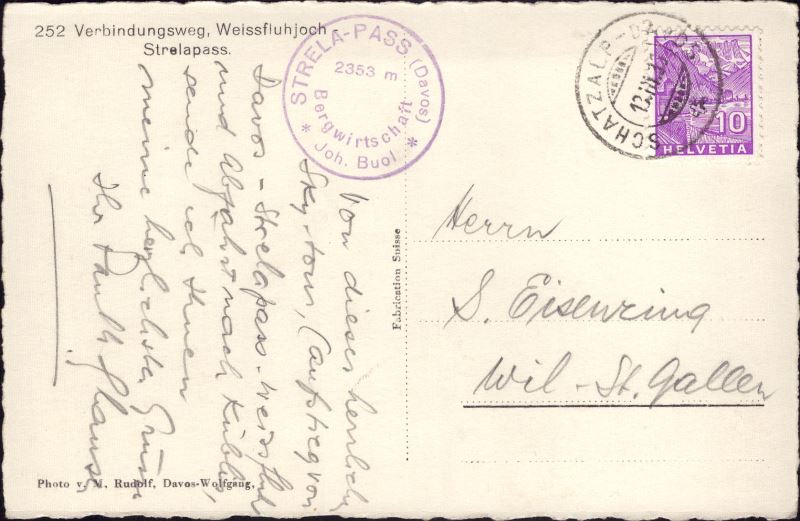 252 Verbindungsweg, Weissfluhjoch -
Strelapass.
STRELA-PASS (Davos)
2353 m
Bergwirtschaft
* Joh. Buol *
SCHATZALP - DAVOS
10
HELVETIA
Von dieser herrlichen
Sky-tour, (aufstieg von
Davos - Strelapass - Weissfluh
und Abfahrt nach Küblis,
sende ich Ihnen
meine herzlichsten Grüsse
Ihr
Fabrication Suisse
Herrn
S. Eisenring
Wil - St. Gallen
Photo v. M. Rudolf, Davos-Wolfgang,